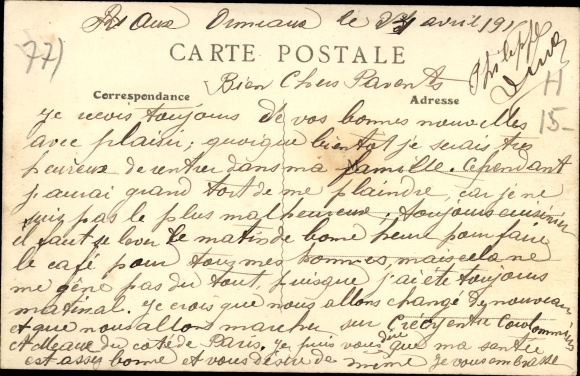 Aux Ormeaux le 24 avril 191
77)
CARTE POSTALE
Philippe
Bien Chers Parents
H
Correspondance
Adresse
15-
Je reçois toujours de vos bonnes nouvelles
avec plaisir; quoique bientot je serais tres
heureux de rentrer dans ma famille. Cependant
j'aurai grand tort de me plaindre, car je ne
suis pas le plus malheureux. Toujours cuisinier
il faut se lever le matin de bonne heure pour faire
le café pour tous mes hommes, mais cela ne
me gêne pas du tout, puisque j'ai été toujours
matinal. Je crois que nous allons changé de nouveau
et que nous allons marcher sur Crecy entre Coulommiers
et Meaux du coté de Paris. Je puis vous dire que ma santé
est assez bonne et vous désire de même je vous embrasse